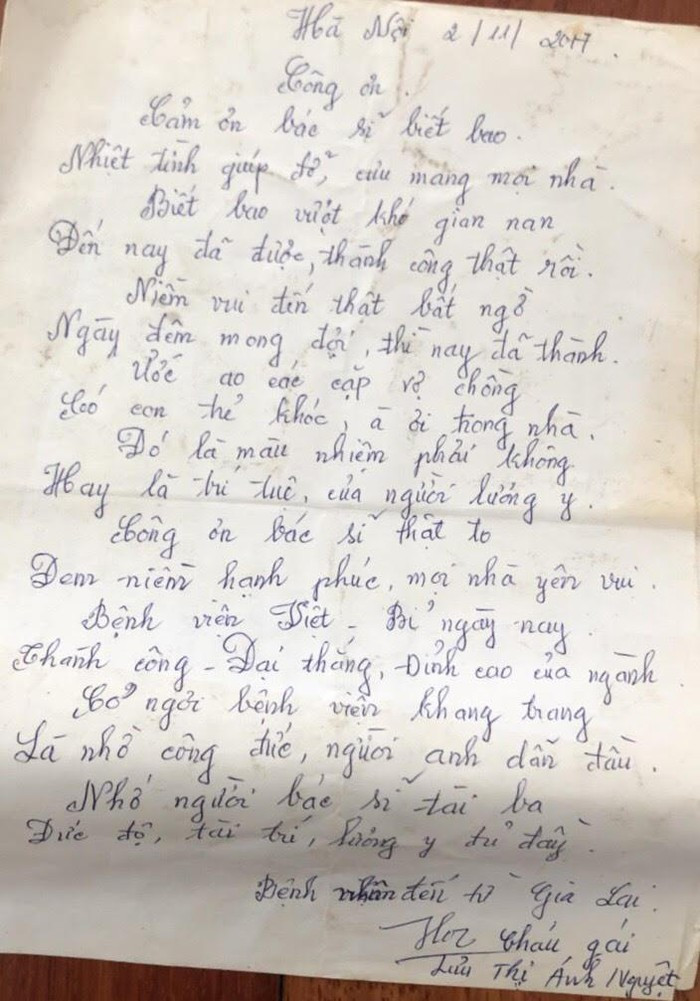 Hà Nội 2/11/2017.
Công ơn.
Cảm ơn bác sĩ biết bao.
Nhiệt tình giúp đỡ, cưu mang mọi nhà.
Biết bao vượt khó gian nan
Đến nay đã được, thành công thật rồi.
Niềm vui đến thật bất ngờ
Ngày đêm mong đợi, thì nay đã thành.
Ước ao các cặp vợ chồng
Có con thẻ khóc, à ơi trong nhà.
Đó là màu nhiệm phải không
Hay là trí tuệ, của người lương y.
Công ơn bác sĩ thật to
Đem niềm hạnh phúc, mọi nhà yên vui.
Bệnh viện Việt - Bỉ ngày nay.
Thành công - Đại thắng, Đỉnh cao của ngành
Cơ ngơi bệnh viện khang trang
Là nhờ công đức, người anh dẫn đầu.
Nhớ người bác sĩ tài ba
Đức độ, tài trí, lương y đủ đầy.
Bệnh nhân đến từ Gia Lai.
cháu gái
Lưu Thị Ánh Nguyệt